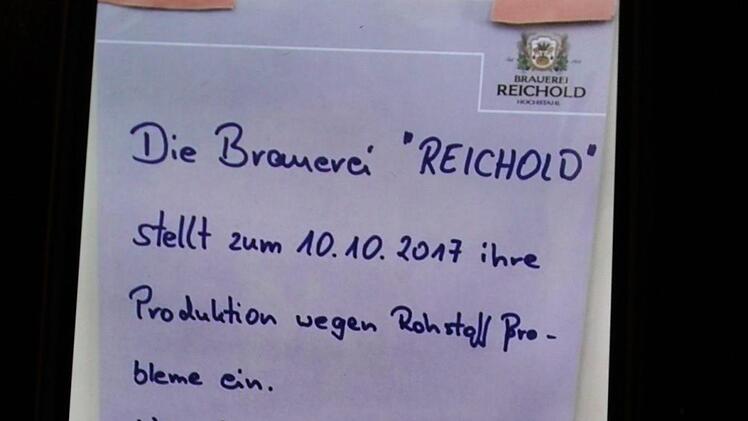 BRAUEREI
REICHOLD
HOCHSTAHL
Die Brauerei "REICHOLD"
stellt zum 10.10.2017 ihre
Produktion wegen Rohstoff Pro-
bleme ein.